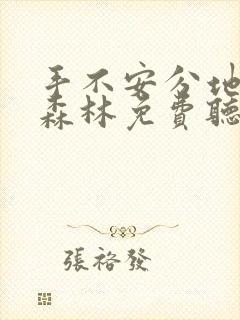 手不安分地
森林免費聽
張裕發